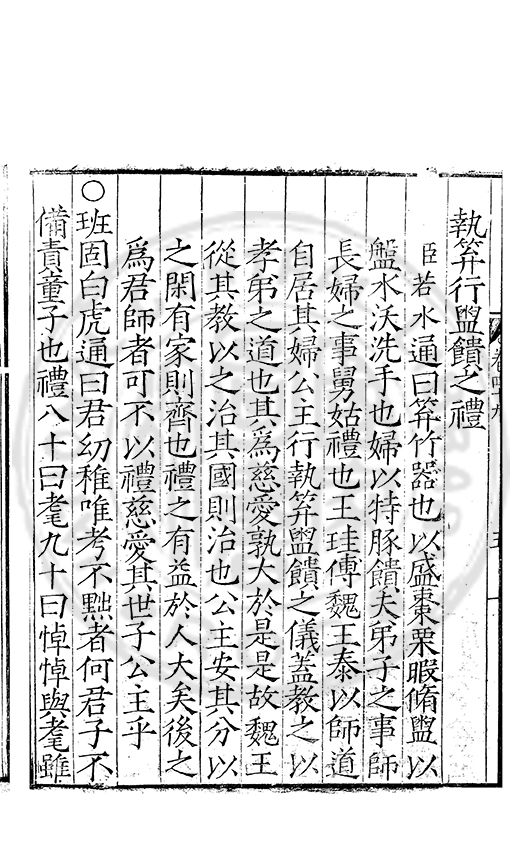 執笲行盥饋之禮
臣若水通曰笲竹器也以盛棗栗腶脩盥以
盤水沃洗手也婦以特豚饋夫弟子之事師
長婦之事舅姑禮也王珪傅魏王泰以師道
自居其婦公主行執笲盥饋之儀蓋教之以
孝弟之道也其為慈愛孰大於是是故魏王
從其教以之治其國則治也公主安其分以
之閑有家則齊也禮之有益於人大矣後之
為君師者可不以禮慈愛其世子公主乎
○班固白虎通曰君幼稚唯考不黜者何君子不
備責童子也禮八十曰耄九十曰悼悼與耄雖